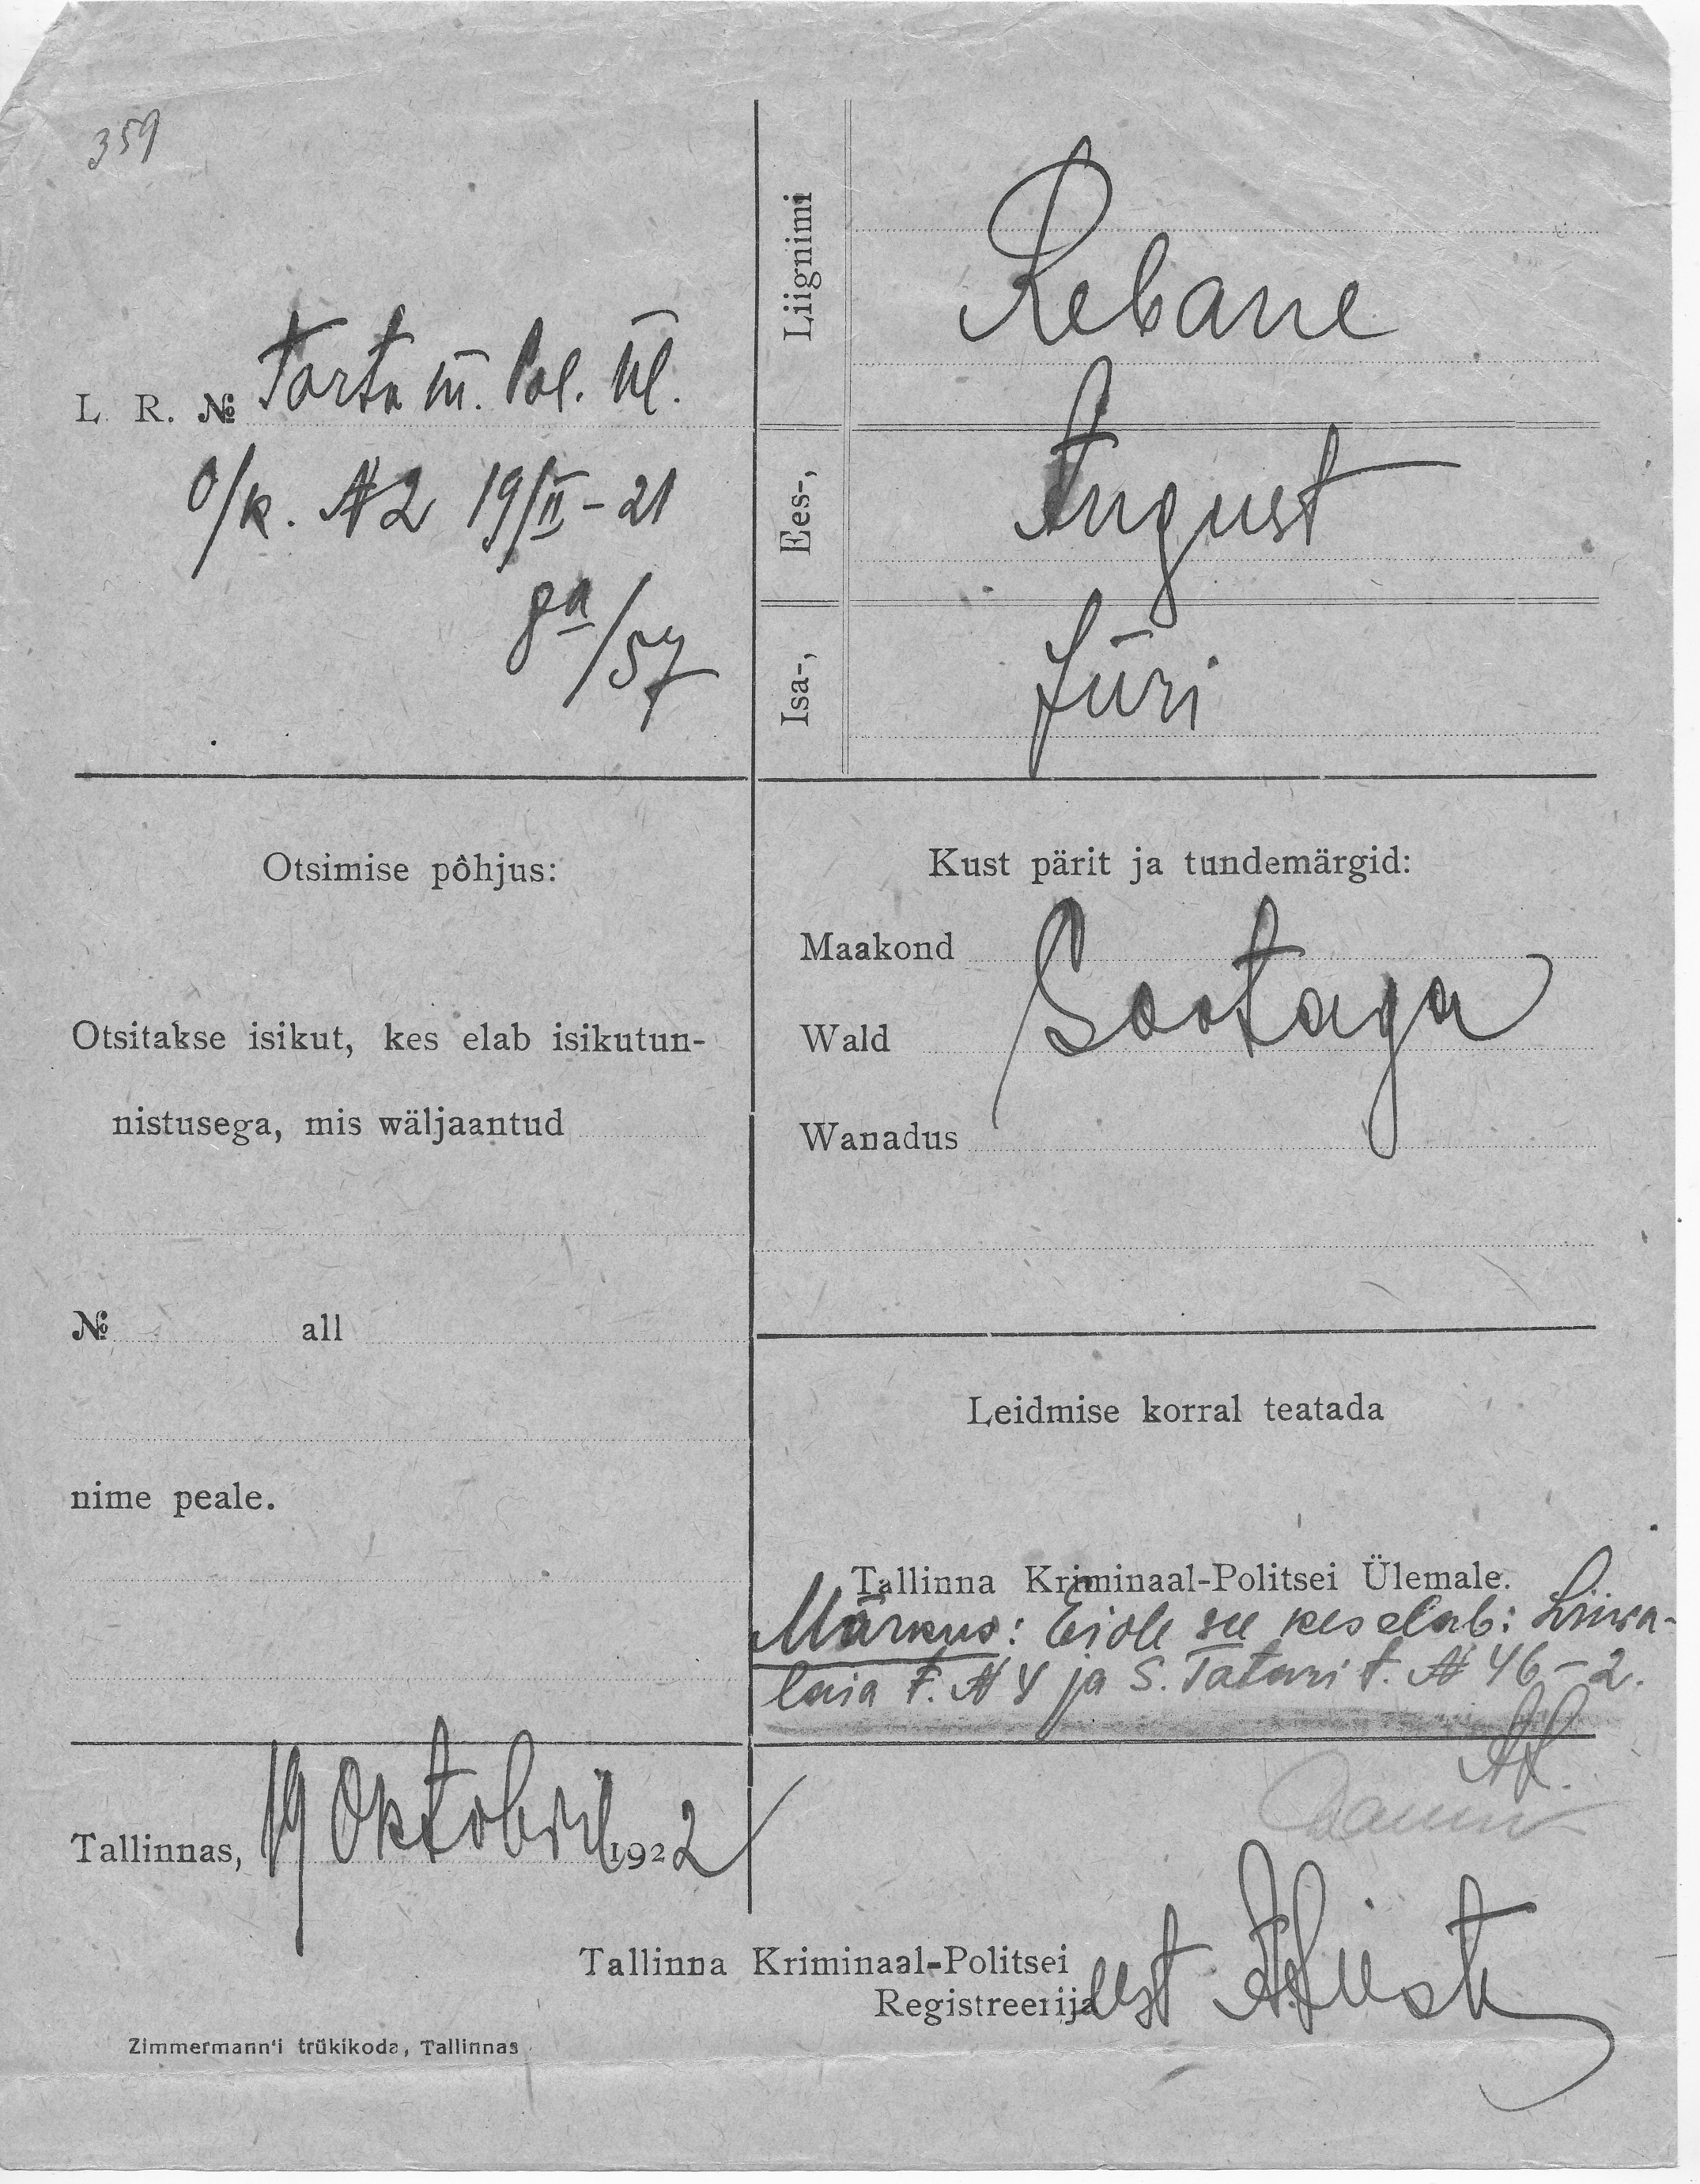 359
L. R. № Tartu m. Pol. Ül.
o/k. № 2 19/II-21
8a/57
Liignimi
Rebane
Ees-,
August
Isa-,
Jüri
Otsimise põhjus:
Otsitakse isikut, kes elab isikutun-
nistusega, mis wäljaantud
№ all
nime peale.
Kust pärit ja tundemärgid:
Maakond
Wald Sootaga
Wanadus
Leidmise korral teatada
Tallinna Kriminaal-Politsei Ülemale.
Märkus: Ei ole see kes elab: Liiwa-
laia t. № 4 ja S. Tatari t. № 46-2.
Tallinnas, 19 Oktobril 1922
Tallinna Kriminaal-Politsei
Registreerija eest
Zimmermann'i trükikoda, Tallinnas